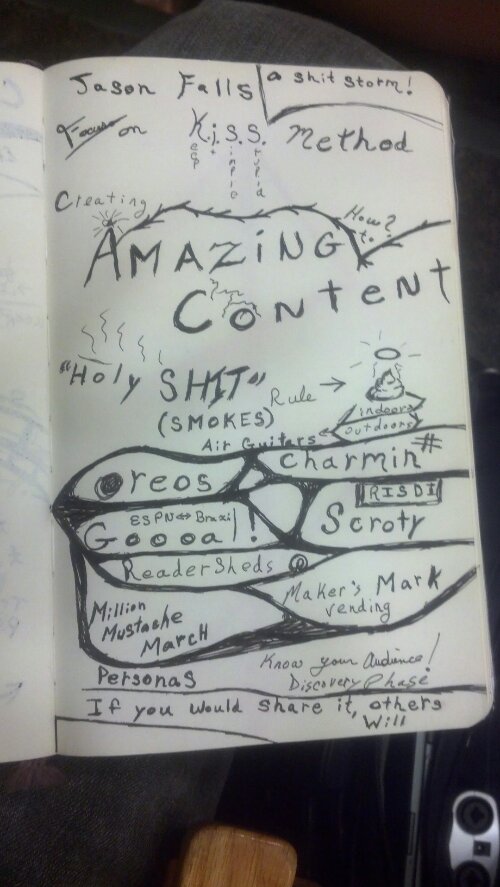 Jason Falls
a shit storm!
Focus on K.i.s.s. Method
eep
imple
tupid
Creating
How?
to.
AMAZiNG
CONteNt
"Holy SHIT"
(SMOKES)
Rule →
indoors
outdoors
Air Guitars
Oreos
Charmin #
RISDI
ESPN ↔ Brazil
Goooal!
Scroty
ReaderSheds @
Maker's Mark
vending
Million
Mustache
March
Know your Audience!
Discovery Phase
Personas
If you would share it, others
will